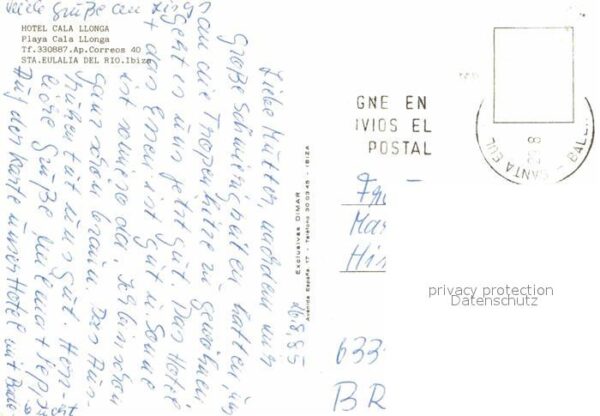 HOTEL CALA LLONGA
Playa Cala LLonga
Tf.330887.Ap.Correos 40
STA.EULALIA DEL RIO.Ibiza
Liebe Mutter, nachdem wir
große Schwierigkeiten hatten, uns
an die Tropenhitze zu gewöhnen
geht es uns jetzt gut. Das Hotel
+ das Essen ist gut u. Sonne
ist sowieso da. Ich bin schon
ganz schön braun. Das Aus-
ruhen tut uns gut. Herz-
liche Grüße
Auf der Karte unser Hotel mit
viele Grüße an
26.8.85
Exclusivas DIMAR
Avenida España, 17 - Teléfono 30 03 45 - IBIZA
GNE EN
IVIOS EL
POSTAL
SANTA EUL
BALE
Fr
Ma
Hi
633
BR
privacy protection
Datenschutz